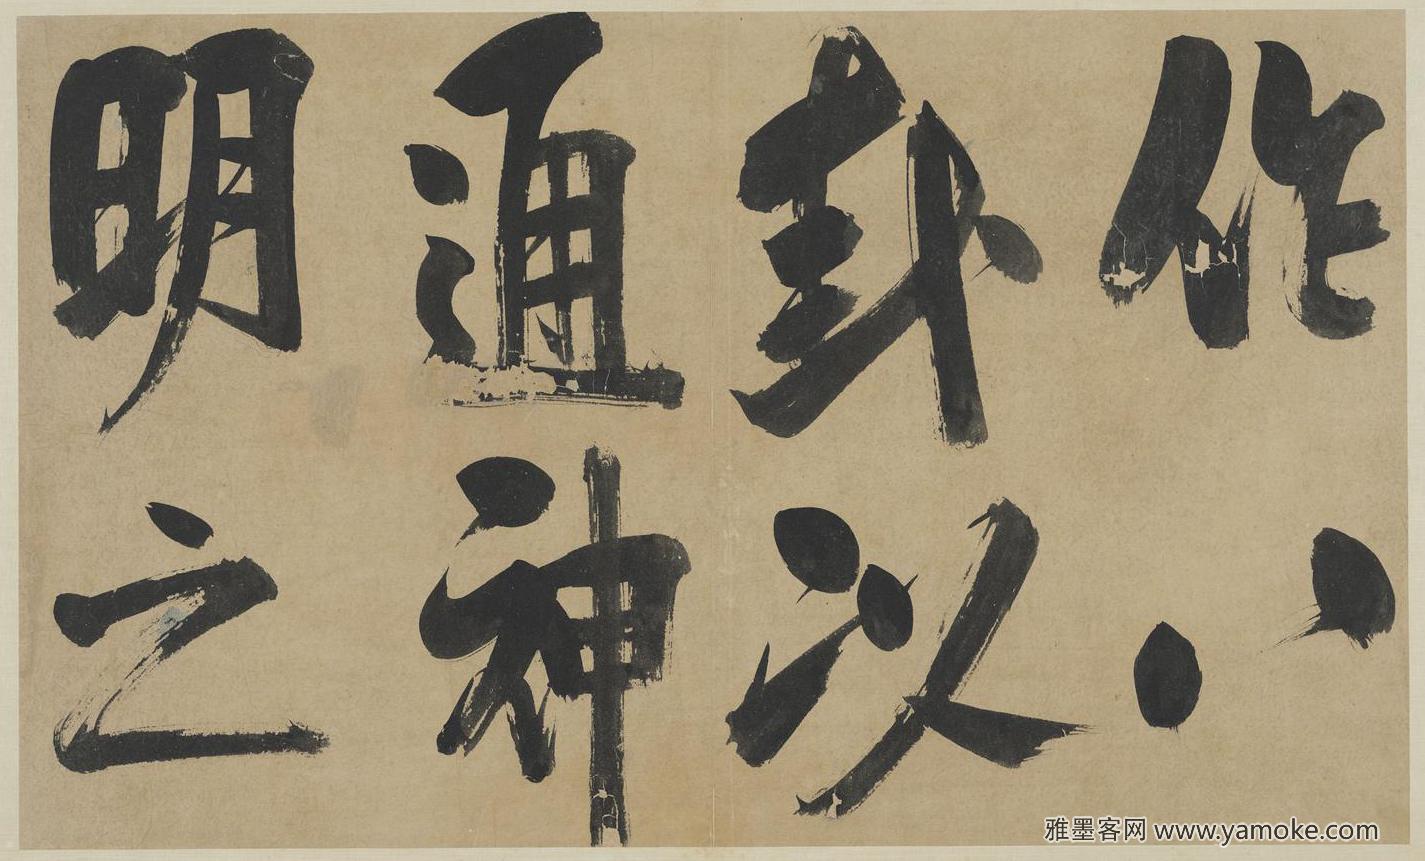 作八
卦以
通神
明之
雅墨客网 www.yamoke.com